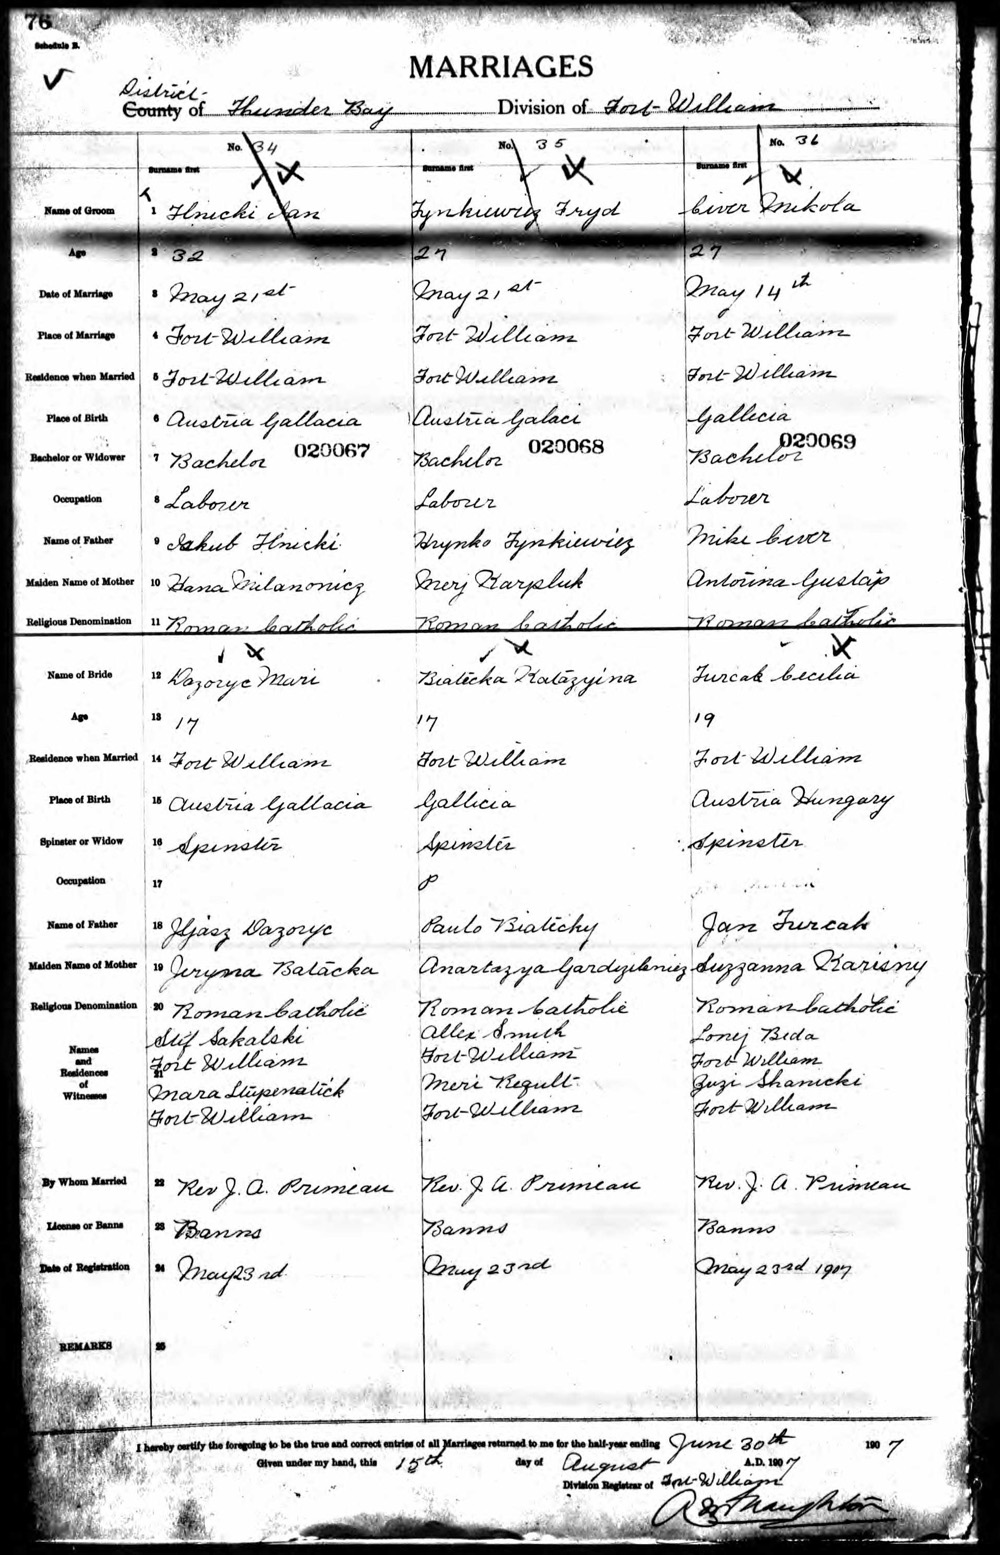 76
Schedule B.
MARRIAGES
District
County of Thunder Bay Division of Fort William
No. 34 No. 35 No. 36
Surname first Surname first Surname first
Name of Groom 1 Ilnicki Jan Tynkiewicz Fryd Civer Mikola
Age 2 32 27 27
Date of Marriage 3 May 21st May 21st May 14th
Place of Marriage 4 Fort William Fort William Fort William
Residence when Married 5 Fort William Fort William Fort William
Place of Birth 6 Austria Gallacia Austria Galaci Gallicia
Bachelor or Widower 7 Bachelor 020067 Bachelor 020068 Bachelor 020069
Occupation 8 Laborer Laborer Laborer
Name of Father 9 Jakub Ilnicki Hrynko Tynkiewicz Mike Civer
Maiden Name of Mother 10 Hana Milanonicz Merj Karpluk Antorina Gustap
Religious Denomination 11 Roman Catholic Roman Catholic Roman Catholic
Name of Bride 12 Dazoryc Mari Biatecka Katazyina Turcak Cecilia
Age 13 17 17 19
Residence when Married 14 Fort William Fort William Fort William
Place of Birth 15 Austria Gallacia Gallicia Austria Hungary
Spinster or Widow 16 Spinster Spinster Spinster
Occupation 17
Name of Father 18 Iljasz Dazoryc Paulo Biatecky Jan Turcak
Maiden Name of Mother 19 Jeryma Batacka Anartazya Suzzanna Karisny
Religious Denomination 20 Roman Catholic Roman Catholic Roman Catholic
Names and Residences of Witnesses 21
Stef Sakalski Allex Smith Lonij Beda
Fort William Fort William Fort William
Mara Stupenatick Meri Regult Zuzi Shanicki
Fort William Fort William Fort William
By Whom Married 22 Rev J. A. Primeau Rev. J. A. Primeau Rev. J. A. Primeau
License or Banns 23 Banns Banns Banns
Date of Registration 24 May 23rd May 23rd May 23rd 1907
REMARKS 25
I hereby certify the foregoing to be the true and correct entries of all Marriages returned to me for the half-year ending June 30th 1907
Given under my hand, this 15th day of August A.D. 1907
Division Registrar of Fort William